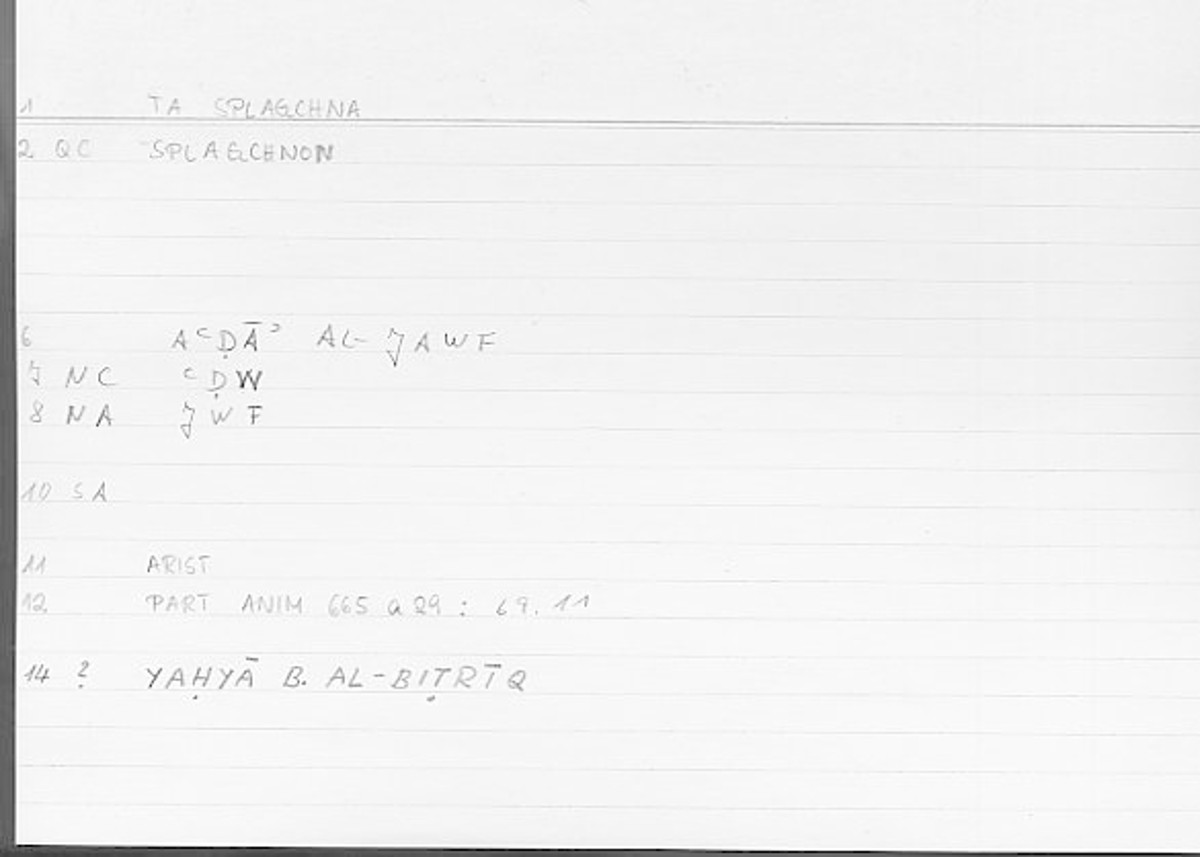 1 TA SPLAGCHNA
2 QC SPLAGCHNON
6 AʿḌĀʾ AL-JAWF
7 NC ʿḌW
8 NA JWF
10 SA
11 ARIST
12 PART ANIM 665 a 29 : 69. 11
14 ? YAḤYĀ B. AL-BIṬRĪQ